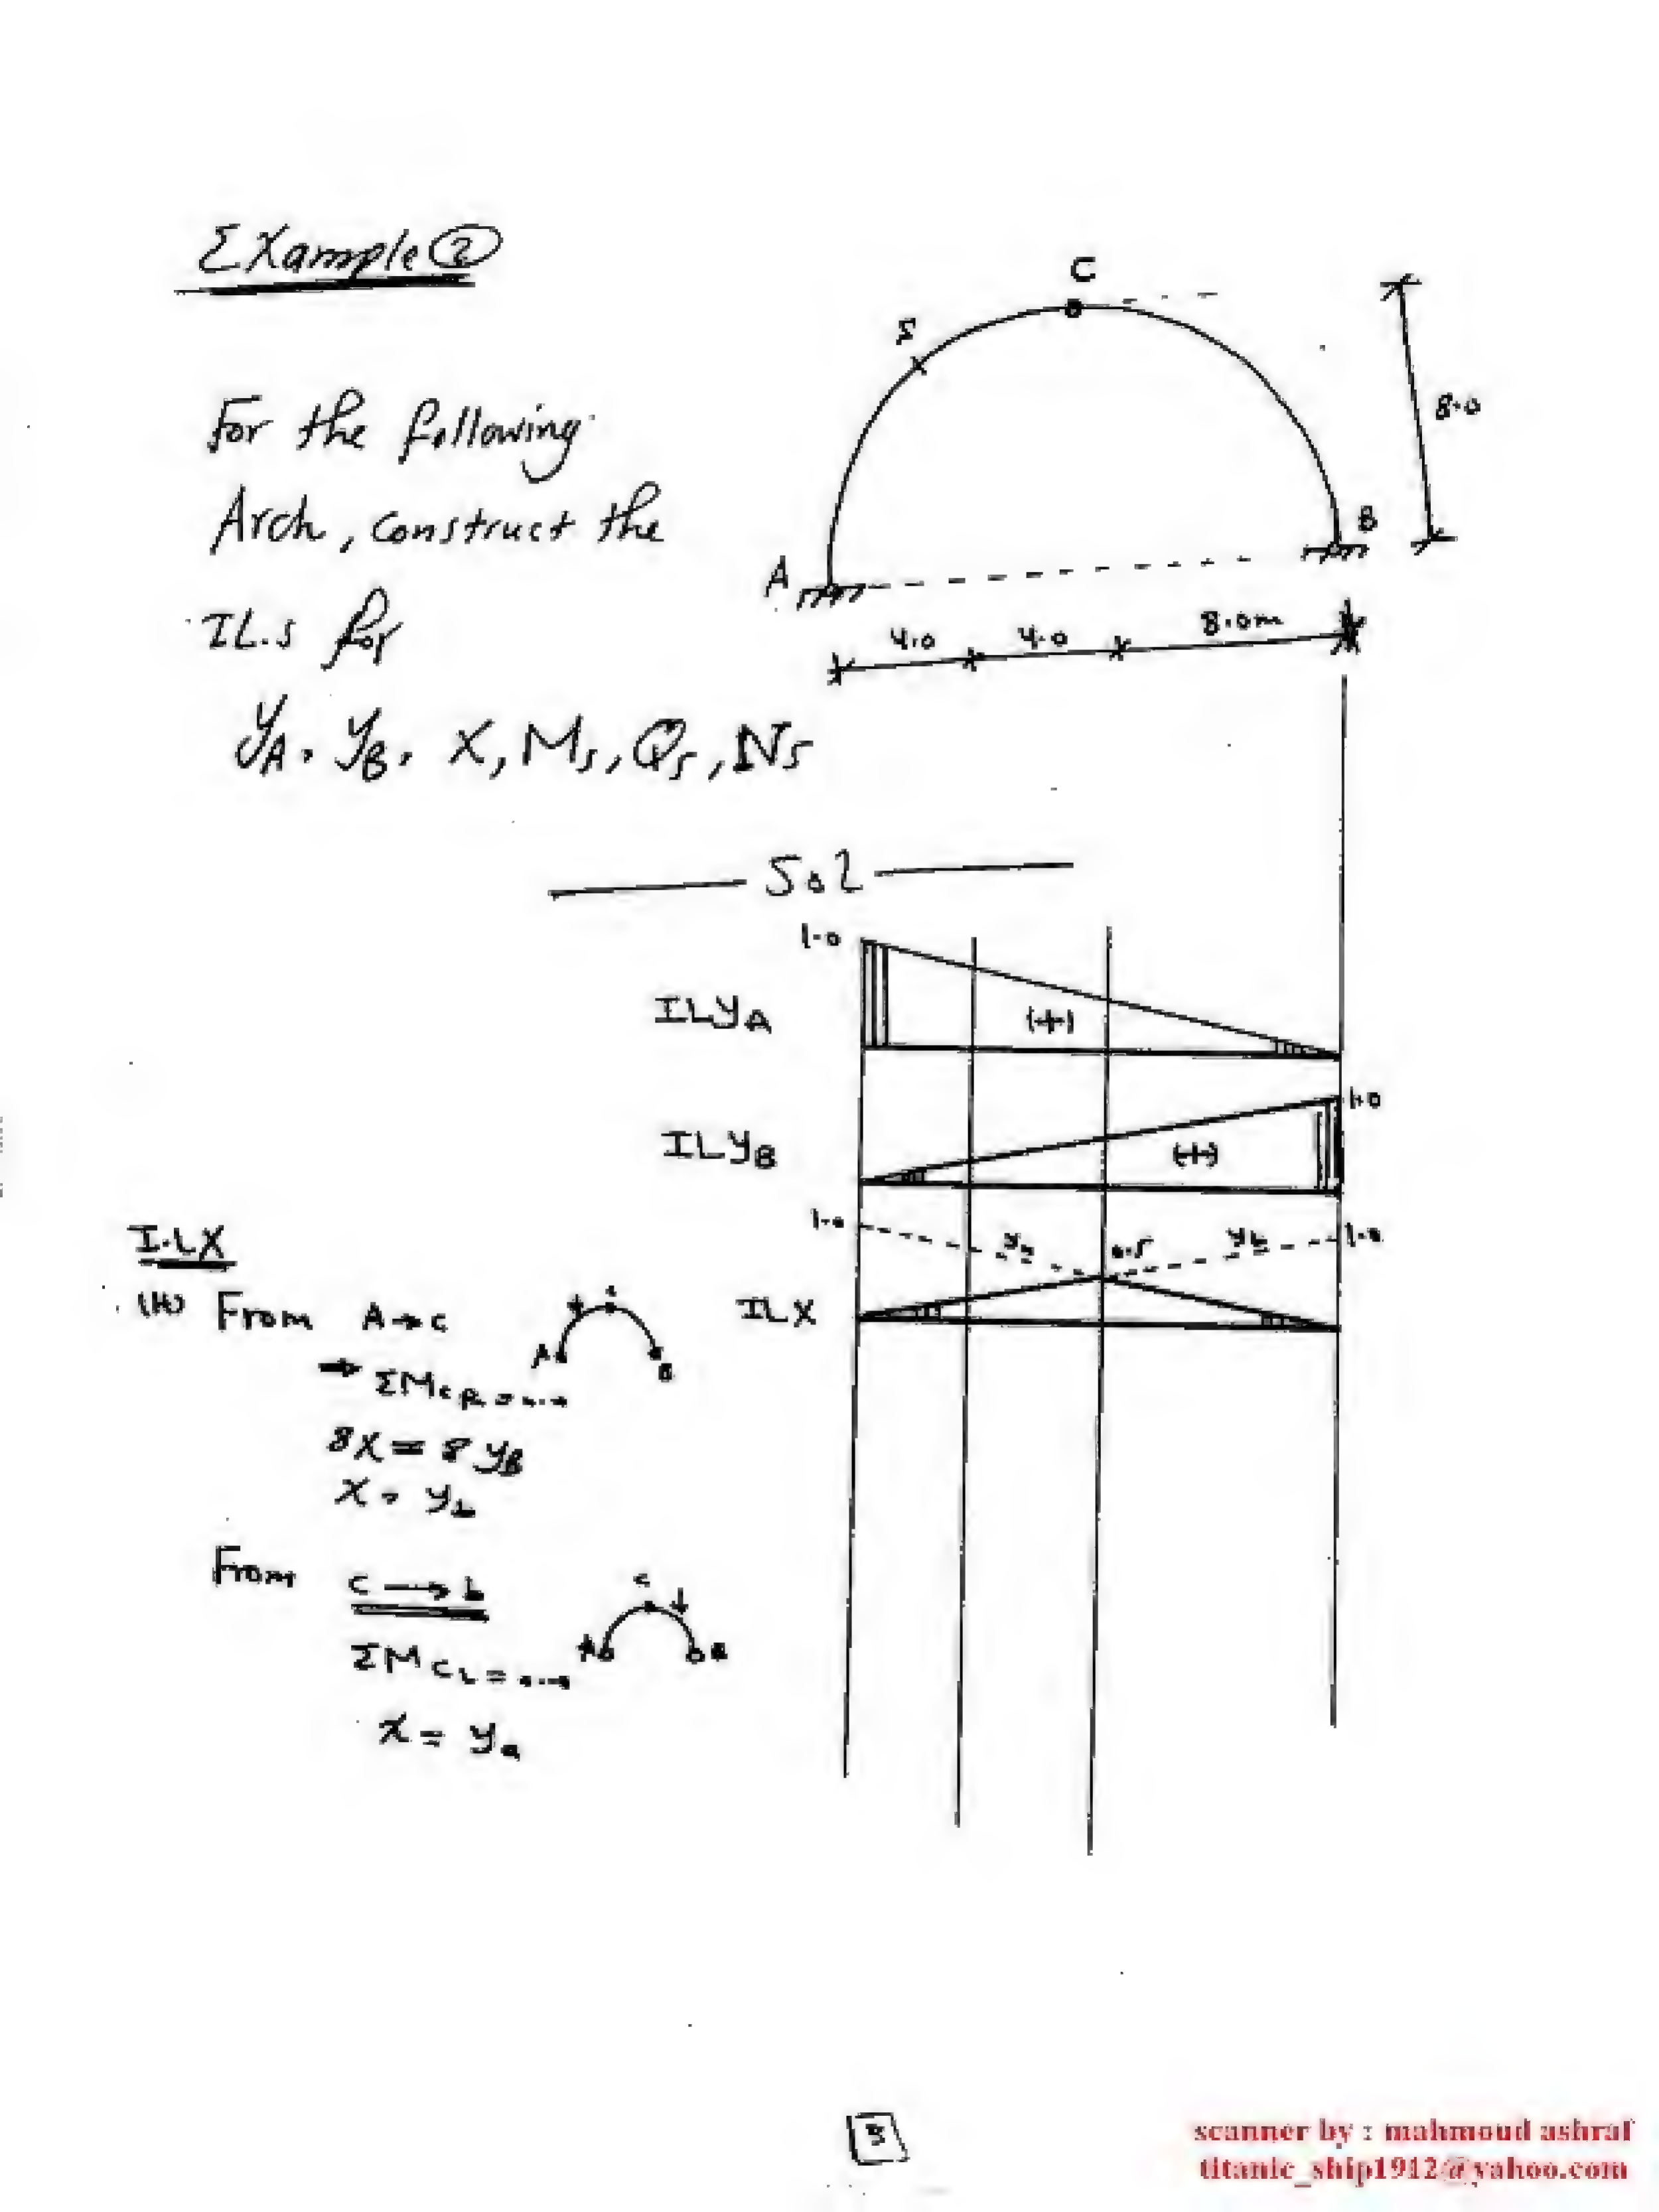 Example ②
C
S
8.0
For the following
Arch, construct the
IL.s for
yA, yB, X, Ms, Qs, Ns
A
B
4.0 4.0 8.0m
Sol
1.0
ILyA
(+)
1.0
ILyB
(+)
1.0 0.5 yb 1.0
ILX
I.LX
(H) From A→C
A B
→ ΣMCR = ...→
8X = 8 yB
X = yb
From C → b
C
ΣMCL = ...→
x = ya
3
scanner by : mahmoud ashraf
titanic_ship1912@yahoo.com